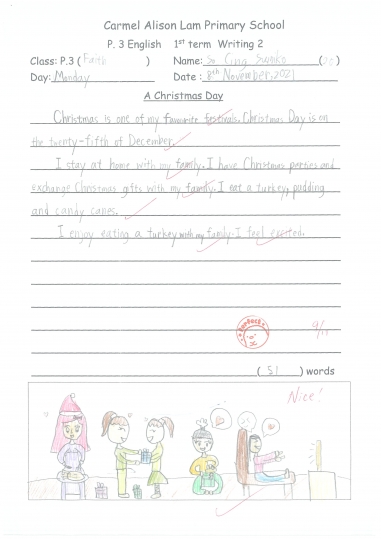 Carmel Alison Lam Primary School
P. 3 English 1st term Writing 2
Class: P.3 ( Faith ) Name: So Ching (20)
Day: Monday Date : 8th November, 2021
A Christmas Day
Christmas is one of my favourite festivals. Christmas Day is on
the twenty-fifth of December.
I stay at home with my family. I have Christmas parties and
exchange Christmas gifts with my family. I eat a turkey, pudding
and candy canes.
I enjoy eating a turkey with my family. I feel excited.
( 51 ) words
Nice!